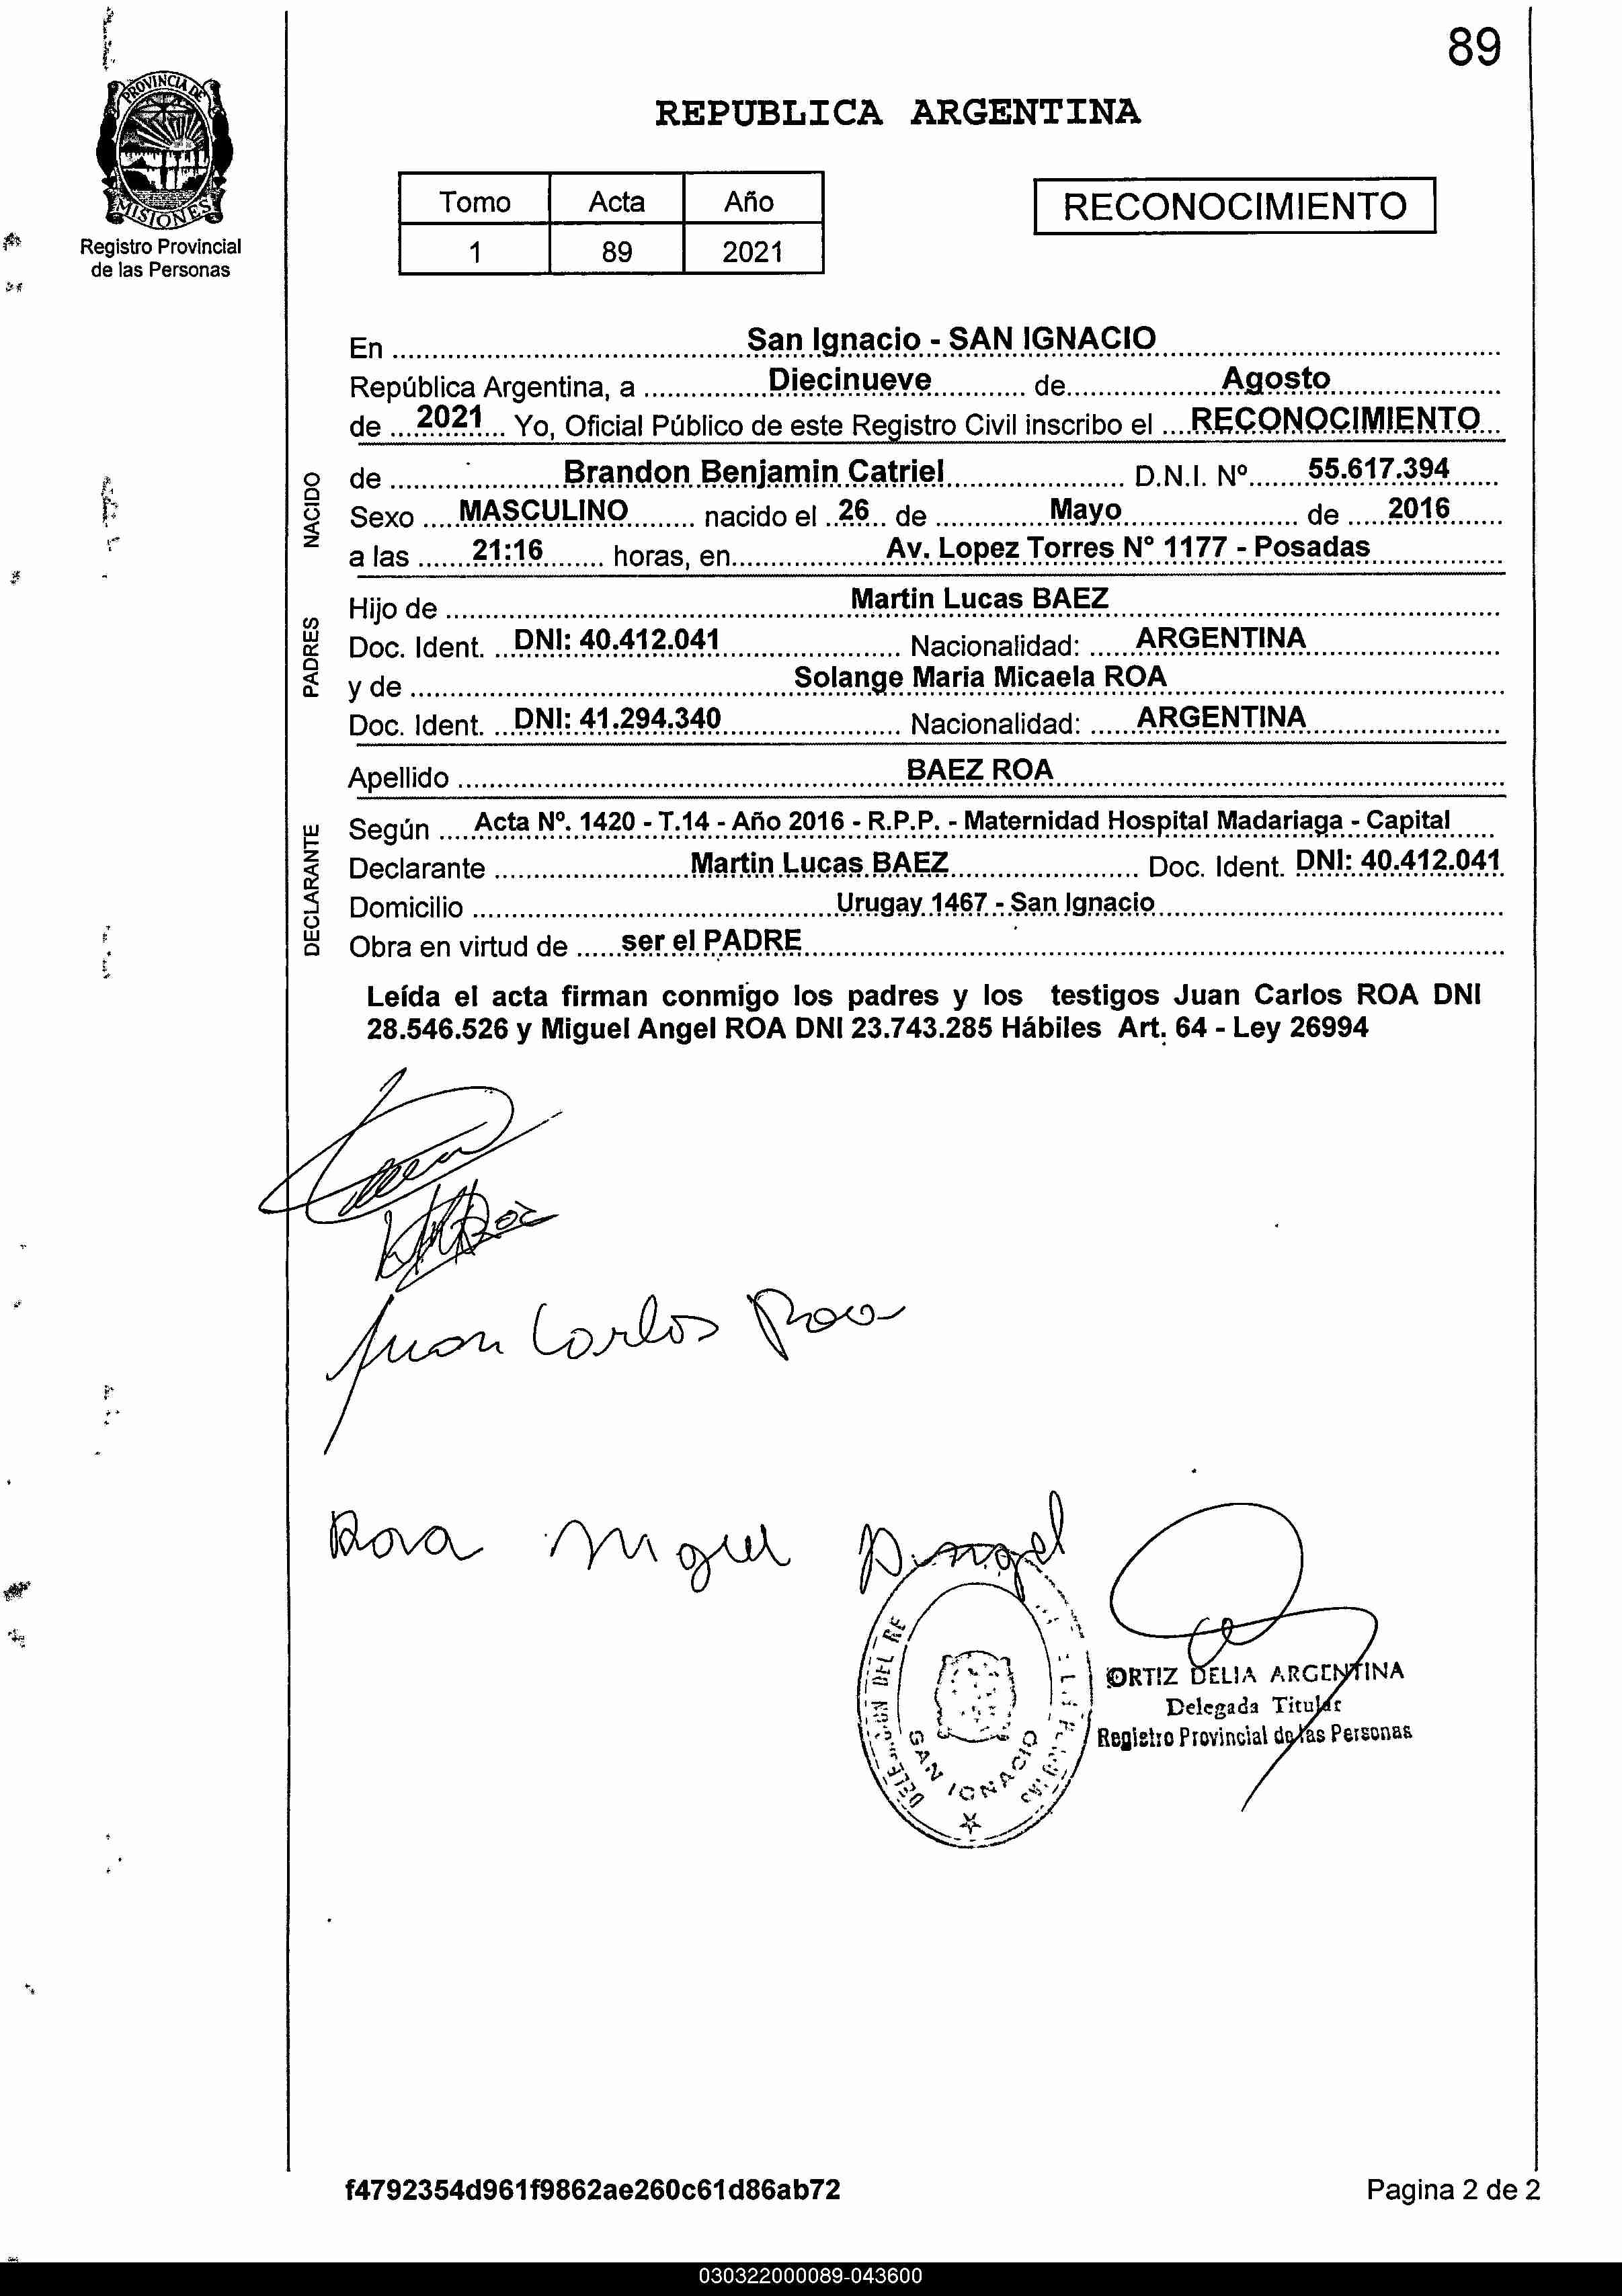 89
PROVINCIA DE
MISIONES
Registro Provincial
de las Personas
REPUBLICA ARGENTINA
Tomo Acta Año
1 89 2021
RECONOCIMIENTO
En San Ignacio - SAN IGNACIO
República Argentina, a Diecinueve de Agosto
de 2021 Yo, Oficial Público de este Registro Civil inscribo el RECONOCIMIENTO
NACIDO
de Brandon Benjamin Catriel D.N.I. Nº 55.617.394
Sexo MASCULINO nacido el 26 de Mayo de 2016
a las 21:16 horas, en Av. Lopez Torres N° 1177 - Posadas
PADRES
Hijo de Martin Lucas BAEZ
Doc. Ident. DNI: 40.412.041 Nacionalidad: ARGENTINA
y de Solange Maria Micaela ROA
Doc. Ident. DNI: 41.294.340 Nacionalidad: ARGENTINA
Apellido BAEZ ROA
DECLARANTE
Según Acta Nº. 1420 - T.14 - Año 2016 - R.P.P. - Maternidad Hospital Madariaga - Capital
Declarante Martin Lucas BAEZ Doc. Ident. DNI: 40.412.041
Domicilio Urugay 1467 - San Ignacio
Obra en virtud de ser el PADRE
Leída el acta firman conmigo los padres y los testigos Juan Carlos ROA DNI
28.546.526 y Miguel Angel ROA DNI 23.743.285 Hábiles Art. 64 - Ley 26994
Juan Carlos Roa
Roa Miguel Angel
SAN IGNACIO
ORTIZ DELIA ARGENTINA
Delegada Titular
Registro Provincial de las Personas
f4792354d961f9862ae260c61d86ab72
Pagina 2 de 2
030322000089-043600